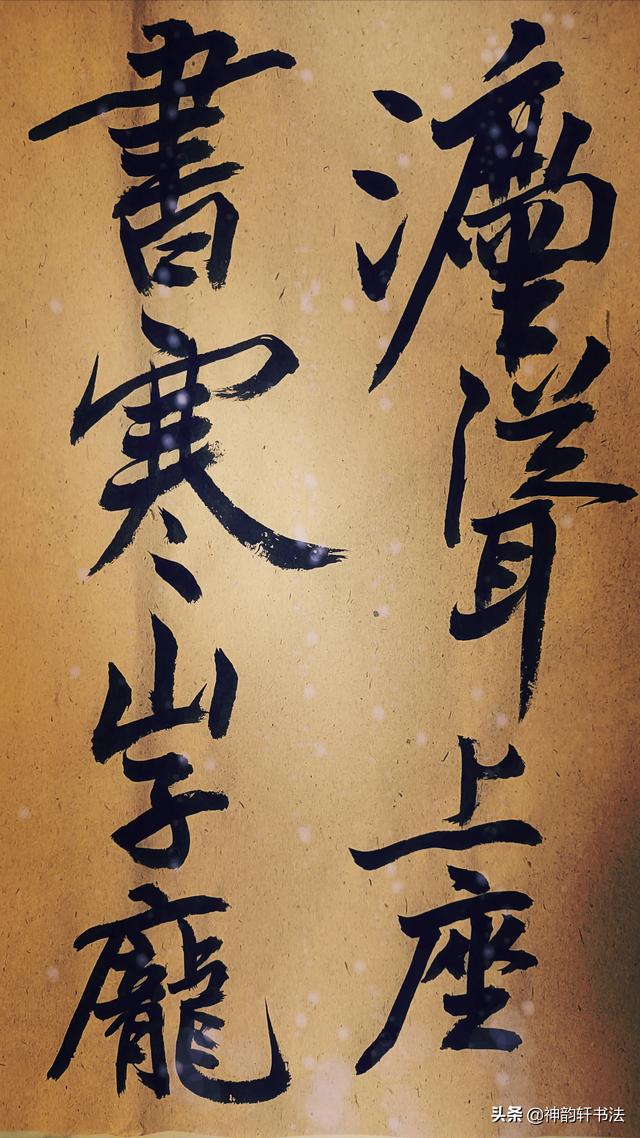 灋聳上座
書寒山子龐
头条 @神韵轩书法